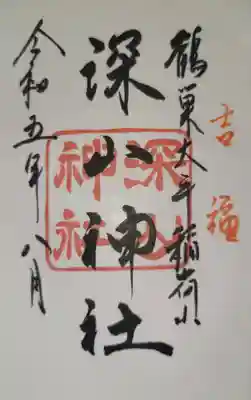 吉福
鶴巣大平 稲荷山
深山神社
深山
神社
令和五年八月